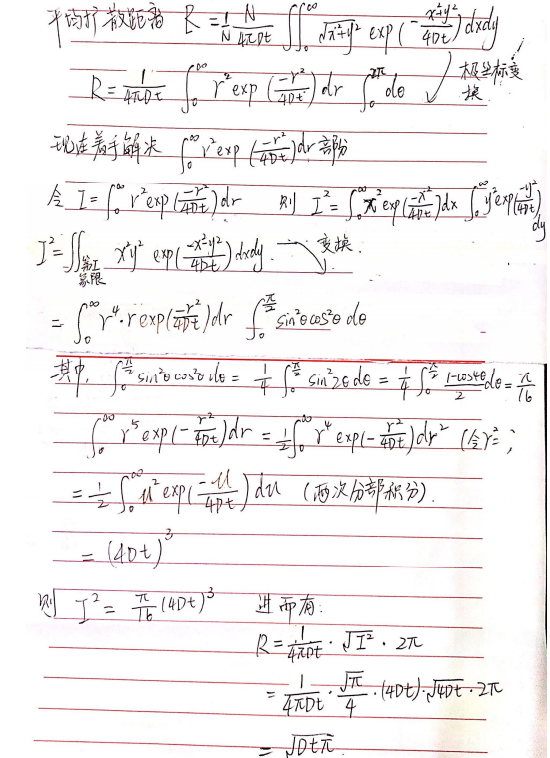 平均扩散距离 R = 1/N N/4πDt ∬₀^∞ √(x²+y²) exp(-(x²+y²)/4Dt) dxdy
R = 1/4πDt ∫₀^∞ r² exp(-r²/4Dt) dr ∫₀^2π dθ 极坐标变换
现在着手解决 ∫₀^∞ r² exp(-r²/4Dt) dr 部份
令 I = ∫₀^∞ r² exp(-r²/4Dt) dr 则 I² = ∫₀^∞ x² exp(-x²/4Dt) dx ∫₀^∞ y² exp(-y²/4Dt) dy
I² = ∬第I象限 x²y² exp(-x²-y²/4Dt) dxdy 变换.
= ∫₀^∞ r⁴·r exp(-r²/4Dt) dr ∫₀^π/2 sin²θcos²θ dθ
其中, ∫₀^π/2 sin²θcos²θ dθ = 1/4 ∫₀^π/2 sin²2θ dθ = 1/4 ∫₀^π/2 (1-cos4θ)/2 dθ = π/16
∫₀^∞ r⁵ exp(-r²/4Dt) dr = 1/2 ∫₀^∞ r⁴ exp(-r²/4Dt) dr² (令r²=
= 1/2 ∫₀^∞ u² exp(-u/4Dt) du (两次分部积分).
= (4Dt)³
则 I² = π/16 (4Dt)³ 进而有:
R = 1/4πDt · √I² · 2π
= 1/4πDt · √π/4 · (4Dt)·√4Dt · 2π
= √Dtπ